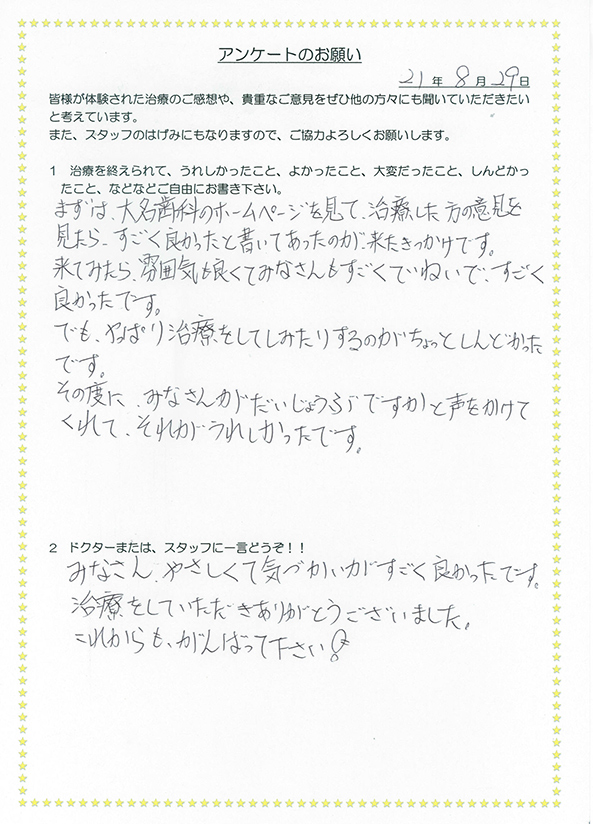 アンケートのお願い
21年8月29日
皆様が体験された治療のご感想や、貴重なご意見をぜひ他の方々にも聞いていただきたい
と考えています。
また、スタッフのはげみにもなりますので、ご協力よろしくお願いします。
1 治療を終えられて、うれしかったこと、よかったこと、大変だったこと、しんどかっ
たこと、などなどご自由にお書き下さい。
まずは、大名歯科のホームページを見て、治療した方の意見を
見たら、すごく良かったと書いてあったのが、来たきっかけです。
来てみたら、雰囲気も良くてみなさんもすごくていねいで、すごく
良かったです。
でも、やっぱり治療をしてしみたりするのがちょっとしんどかった
です。
その度に、みなさんがだいじょうぶですかと声をかけて
くれて、それがうれしかったです。
2 ドクターまたは、スタッフに一言どうぞ！！
みなさん、やさしくて気づかいがすごく良かったです。
治療をしていただきありがとうございました。
これからも、がんばって下さい!